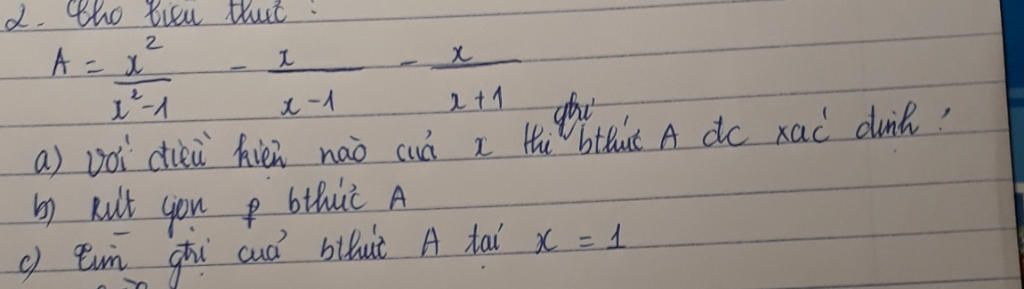 2. Cho biểu thức:
A = \frac{x^2}{x^2-1} - \frac{x}{x-1} - \frac{x}{x+1}
a) Với điều kiện nào của x thì gtrị bthức A đc xác định?
b) Rút gọn p bthức A
c) Tìm gtrị cuả bthức A tại x = 1